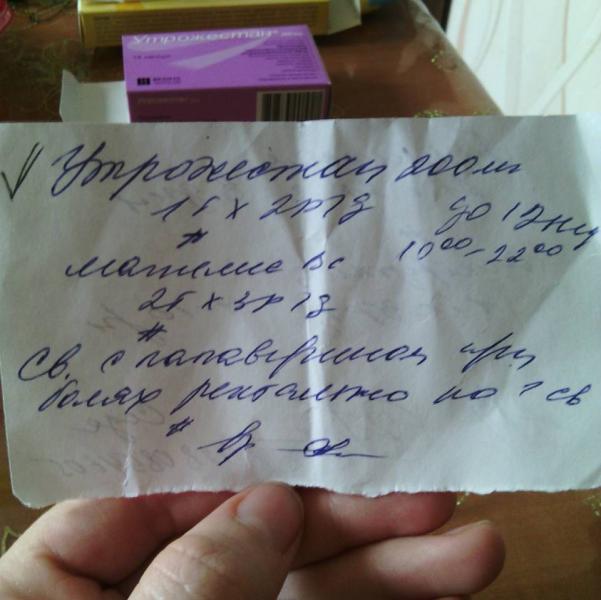 Утрожестан®
Утрожестан
Утрожестан 200 мг
1т х 2р 1д до 12 нед
# 10⁰⁰-22⁰⁰
магнелис В6
2т х 3р 1д
#
Св. с папаверином при
болях ректально по 1 св
# Вр